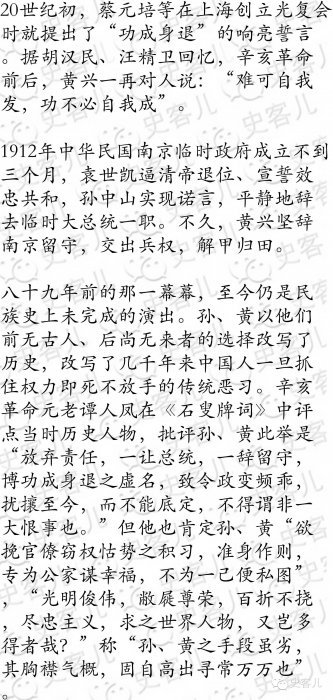 20世纪初，蔡元培等在上海创立光复会
时就提出了“功成身退”的响亮誓言
。据胡汉民、汪精卫回忆，辛亥革命
前后，黄兴一再对人说：“难可自我
发，功不必自我成”。
1912年中华民国南京临时政府成立不到
三个月，袁世凯逼清帝退位、宣誓效
忠共和，孙中山实现诺言，平静地辞
去临时大总统一职。不久，黄兴坚辞
南京留守，交出兵权，解甲归田。
八十九年前的那一幕幕，至今仍是民
族史上未完成的演出。孙、黄以他们
前无古人、后尚无来者的选择改写了
历史，改写了几千年来中国人一旦抓
住权力即死不放手的传统恶习。辛亥
革命元老谭人凤在《石叟牌词》中评
点当时历史人物，批评孙、黄此举是
“放弃责任，一让总统，一辞留守，
博功成身退之虚名，致令政变频乖，
扰攘至今，而不能底定，不得谓非一
大恨事也。”但他也肯定孙、黄“欲
挽官僚窃权怙势之积习，准身作则，
专为公家谋幸福，不为一己便私图”
，“光明俊伟，敝屣尊荣，百折不挠
，尽忠主义，求之世界人物，又岂多
得者哉？”称“孙、黄之手段虽劣，
其胸襟气概，固自高出寻常万万也”
。
史客儿